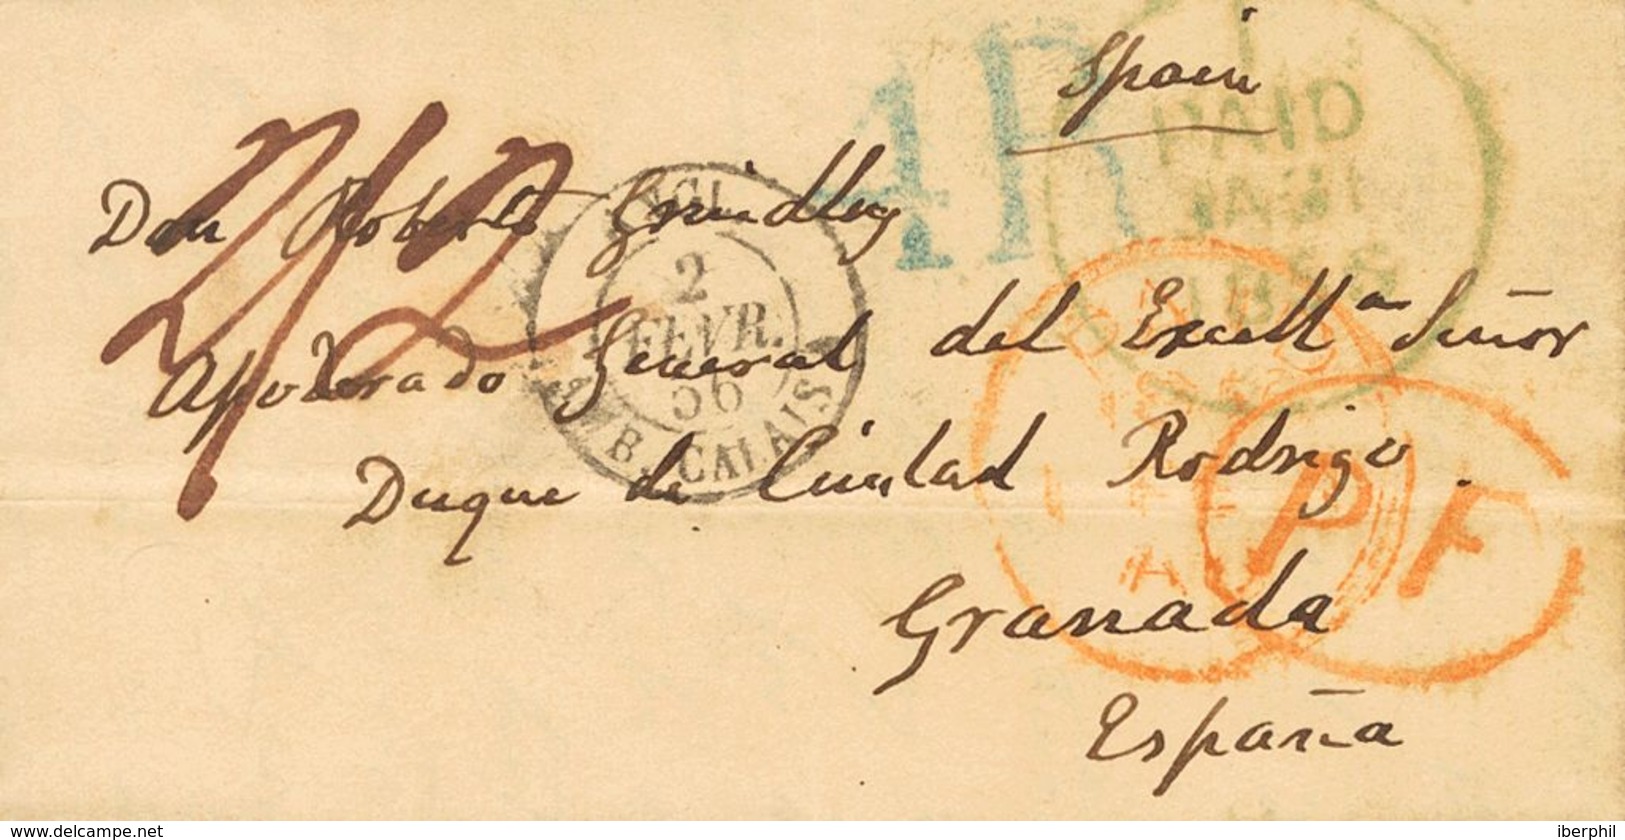 Spain
4R
PAID
2/2
Don Roberto Grindlley
Apoderado General del Excell.mo Señor
Duque de Ciudad Rodrigo.
Granada
España
2
FEVR.
56
CALAIS
PF
www.delcampe.net
iberphil